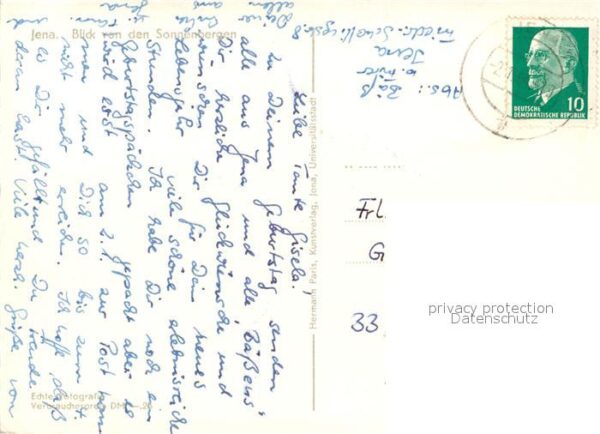 Jena. Blick von den Sonnenbergen
Liebe Tante Gisela!
Zu Deinem Geburtstag senden
alle aus Jena und alle "Bäßens"
Dir herzliche Glückwünsche und
wünschen Dir für Dein neues
Lebensjahr viele schöne erlebnisreiche
Stunden. Ich habe Dir noch ein
Geburtstagspäckchen gepackt aber es
wird erst am 2.1. zur Post
und Dich so bis zum
nicht mehr erreichen. Ich hoffe, daß
es Dir gefällt und Du Freude
daran hast. Viele herzl. Grüße von
Deiner
aus
allen
Jena
Echte Fotografie
Verbraucherpreis DM -,20
Hermann Paris, Kunstverlag, Jena, Universitätsstadt
Abs.: Bäß
Jena
DEUTSCHE
DEMOKRATISCHE REPUBLIK
10
Frl.
G
33
privacy protection
Datenschutz